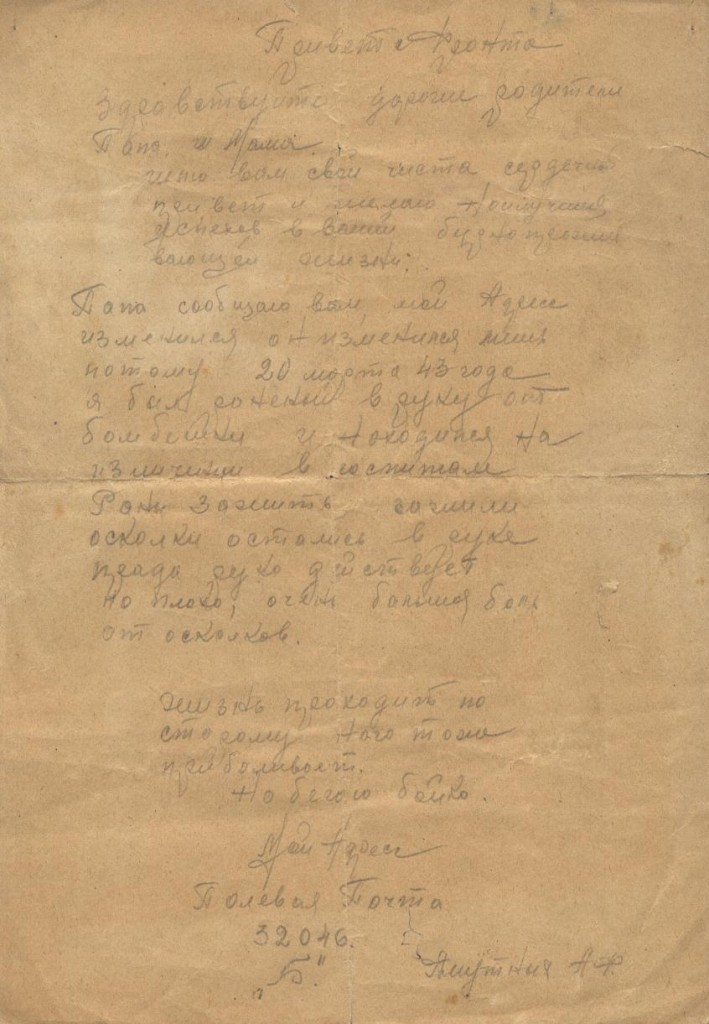 Привет с Фронта
Здравствуйте дорогие родители
Папа, и Мама.
шлю вам свой чиста сердечный
привет и желаю Наилучших
Успехов в вашей
вающей жизни;
Папа сообщаю вам, мой Адрес
изменился он изменился лишь
потому 20 марта 43 года
я был раненый в руку от
бомбёшки и находился на
изличении в госпитали
Раны зажить зажили
осколки остались в руке
правда рука действует
но плохо; очень большая боль
от осколков.
жизнь проходить по
старому нога тоже
прибаливает.
Но бегаю бойко.
Мой Адрес
Полевая Почта
32046.
„Б"
А Ф